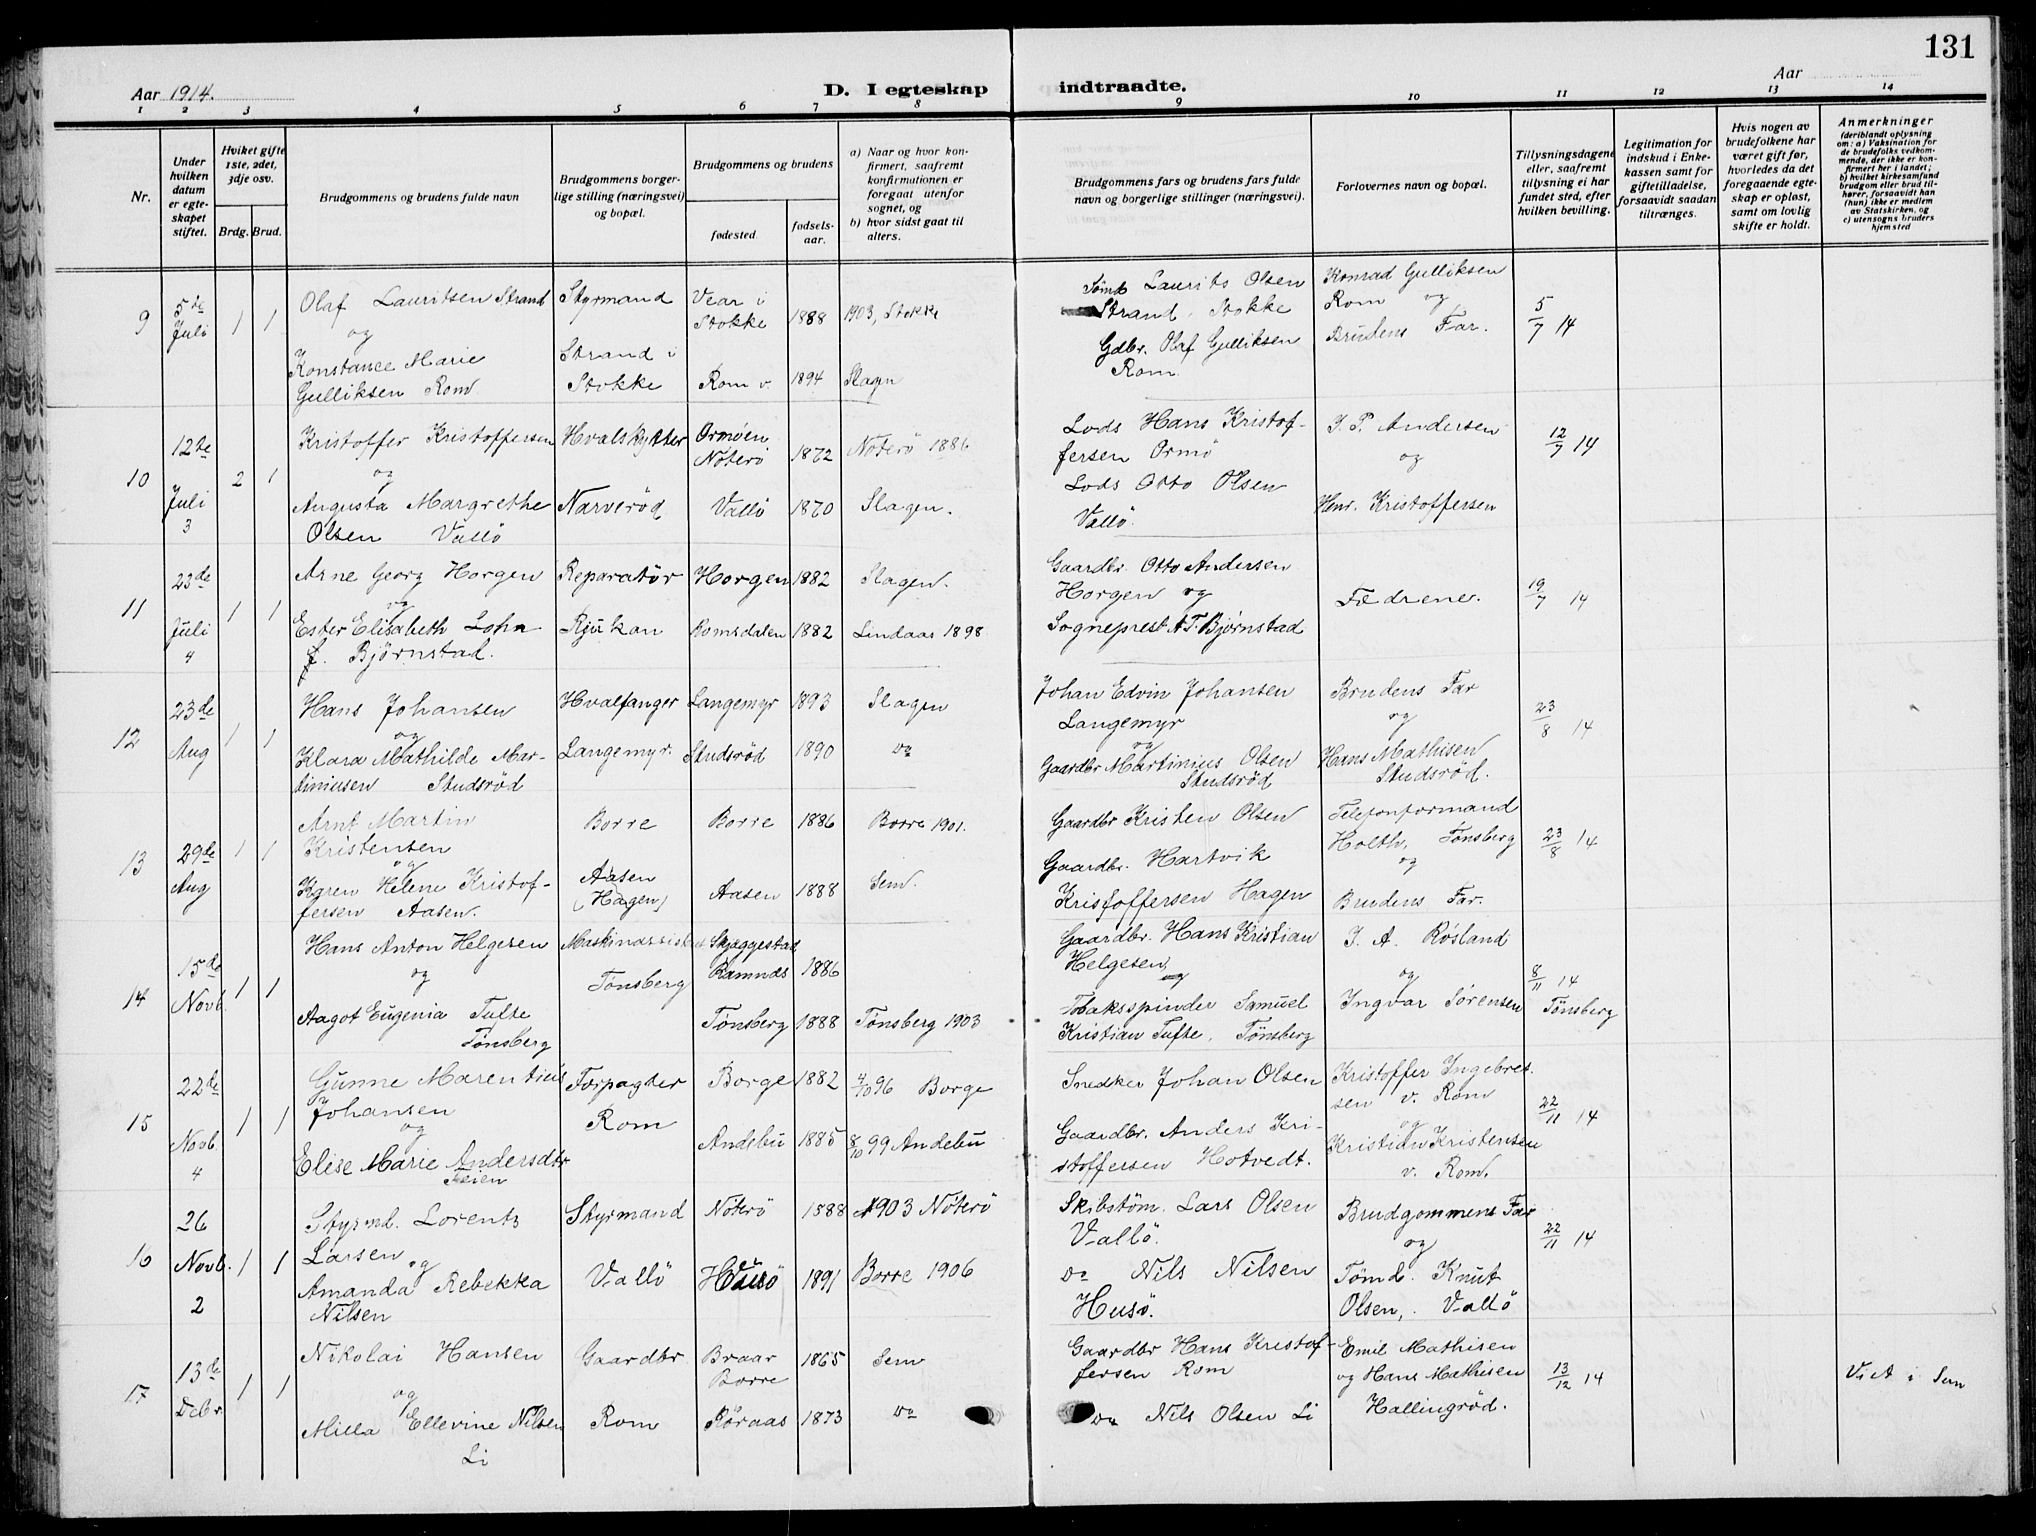 131
Aar 1914.
D. I egteskap indtraadte.
Aar
1 2 3 4 5 6 7 8 9 10 11 12 13 14
Nr.
Under hvilken datum er egteskapet stiftet.
Hvilket gifte 1ste, 2det, 3dje osv.
Brdg. Brud.
Brudgommens og brudens fulde navn
Brudgommens borgerlige stilling (næringsvei) og bopæl.
Brudgommens og brudens
fødested.
fødselsaar.
a) Naar og hvor konfirmert, saafremt konfirmationen er foregaat utenfor sognet, og
b) hvor sidst gaat til alters.
Brudgommens fars og brudens fars fulde navn og borgerlige stillinger (næringsvei).
Forlovernes navn og bopæl.
Tillysningsdagene eller, saafremt tillysning ei har fundet sted, efter hvilken bevilling.
Legitimation for indskud i Enkekassen samt for giftetilladelse, forsaavidt saadan tiltrænges.
Hvis nogen av brudefolkene har været gift før, hvorledes da det foregaaende egteskap er opløst, samt om lovlig skifte er holdt.
Anmerkninger
(deriblandt oplysning om: a) Vaksination for de brudefolks vedkommende, der ikke er konfirmert her i landet; b) hvilket kirkesamfund brudgom eller brud tilhører, forsaavidt han (hun) ikke er medlem av Statskirken, og c) utensogns bruders hjemsted
9 5te Juli 1 1
Olaf Lauritsen Strand
og
Konstance Marie
Gulliksen Rom
Styrmand
Strand i
Stokke
Vear i
Stokke 1888 1903, Stokke
Rom v. 1894 Slagn
Tømd Laurits Olsen
Strand, Stokke
Gdbr. Olaf Gulliksen
Rom
Konrad Gulliksen
Rom og
Brudens Far.
5/7 14
10 12te Juli 3 2 1
Kristoffer Kristoffersen
og
Augusta Margrethe
Olsen Vallö
Hvalskytter
Narveröd
Ormöen
Nöterö 1872 Nöterö 1886
Vallö 1870 Slagen.
Lods Hans Kristof-
fersen Ormö
Lods Otto Olsen
Vallö.
J. P. Andersen
og
Henr. Kristoffersen
12/7 14
11 23de Juli 4 1 1
Arne Georg Horgen
og
Ester Elisabeth Lohn
f. Björnstad.
Reparatör
Rjukan
Horgen 1882 Slagen.
Romsdalen 1882 Lindaas 1898
Gaardbr. Otto Andersen
Horgen og
Sogneprest A. T. Björnstad
Fædrene.
19/7 14
12 23de Aug 1 1
Hans Johansen
og
Klara Mathilde Mar-
tiniusen Studsröd
Hvalfanger
Langemyr.
Langemyr 1893 Slagen
Studsröd 1890 Do
Johan Edvin Johansen
Langemyr
og
Gaardbr Martinius Olsen
Studsröd
Brudens Far
og
Hans Mathisen
Studsröd.
23/8 14
13 29de Aug 1 1
Arnt Martin
Kristensen
og
Karen Helene Kristof-
fersen Aasen.
Borre
Aasen
(Hagen)
Borre 1886 Borre 1901.
Aasen 1888 Sem.
Gaardbr Kristen Olsen
Gaardbr. Hartvik
Kristoffersen Hagen
Telefonformand
Holth, Tönsberg
og
Brudens Far.
23/8 14
14 15de Novb. 1 1
Hans Anton Helgesen
og
Aagot Eugenia Tufte
Tönsberg
Maskinassistent
Tönsberg
Skjaggestad
Ramnæs 1886
Tönsberg 1888 Tönsberg 1903
Gaardbr. Hans Kristian
Helgesen,
og
Tobaksspinder Samuel
Kristian Tufte, Tönsberg
J. A. Rösland
og
Ingvar Sörensen
8/11 14
Tönsberg
15 22de Novb. 4 1 1
Gunne Marentius
Johansen
og
Elise Marie Andersdtr
Feien
Forpagter
Rom
Borge 1882 4/10 96 Borge
Andebu 1885 8/10 99 Andebu
Snedker Johan Olsen
Gaardbr. Anders Kri-
stoffersen Hotvedt.
Kristoffer Ingebret-
sen v. Rom
og
Kristian Kristensen
v. Rom.
22/11 14
16 26 Novb. 2 1 1
Styrmd. Lorentz
Larsen og
Amanda Rebekka
Nilsen
Styrmand
Vallö
Nöterö 1888 1903 Nöterö
Husö 1891 Borre 1906
Skibstöm. Lars Olsen
Vallö.
Do Nils Nilsen
Husö.
Brudgommens Far
og
Tömd. Knut
Olsen, Vallö
22/11 14
17 13de Decbr. 1 1
Nikolai Hansen
og
Milla Ellevine Nilsen
Li
Gaardbr
Rom
Braar
Borre 1865 Sem
Röraas 1873 Do
Gaardbr Hans Kristof-
fersen Rom
Do Nils Olsen Li
Emil Mathisen
og Hans Mathisen
Hallingröd.
13/12 14
Viet i Sem